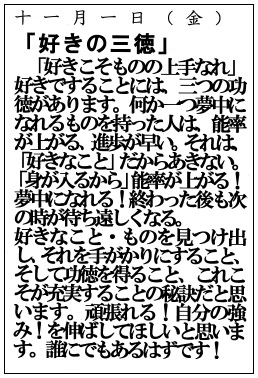 十一月一日（金）
「好きの三徳」
「好きこそものの上手なれ」
好きですることには、三つの功
徳があります。何か一つ夢中に
なれるものを持った人は、能率
が上がる、進歩が早い。それは、
「好きなこと」だからあきない。
「身が入るから」能率が上がる！
夢中になれる！終わった後も次
の時が待ち遠しくなる。
好きなこと・ものを見つけ出
し、それを手がかりにすること、
そして功徳を得ること、これこ
そが充実することの秘訣だと思
います。頑張れる！自分の強
み！を伸ばしてほしいと思いま
す。誰にでもあるはずです！